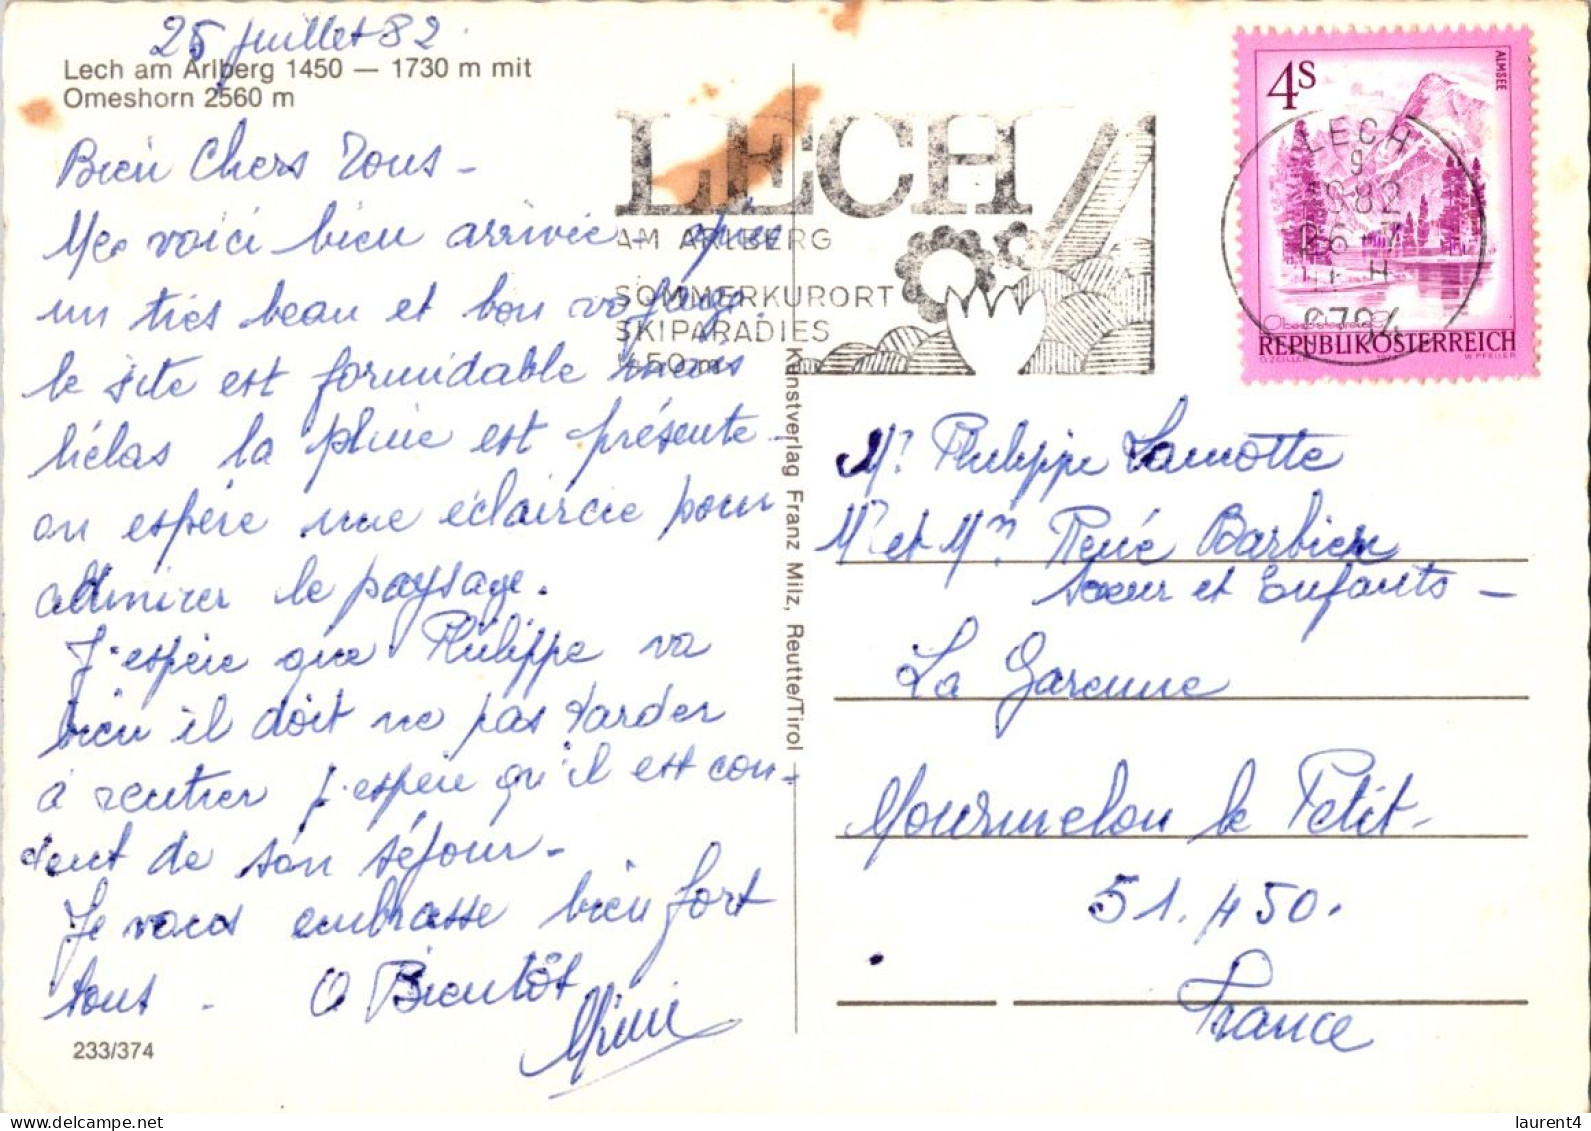 25 juillet 82
Lech am Arlberg 1450 — 1730 m mit
Omeshorn 2560 m
Bien Chers Tous -
Me voici bien arrivée - après
un très beau et bon voyage.
le site est formidable mais
hélas la pluie est présente -
on espère une éclaircie pour
admirer le paysage.
J'espère que Philippe va
bien il doit ne pas tarder
à rentrer j'espère qu'il est con-
tent de son séjour -
Je vous embrasse bien fort
tous - A Bientôt
Mimi
233/374
Kunstverlag Franz Milz, Reutte/Tirol
LECH
AM ARLBERG
SOMMERKURORT
SKIPARADIES
1450 m
ALMSEE
4S
LECH
9
1982
6794
REPUBLIK ÖSTERREICH
W. PFEILER
Mr Philippe Lamotte
Mr et Mm René Barbier
sœur et Enfants -
La Garenne
Mourmelon le Petit -
51.450.
France
laurent4